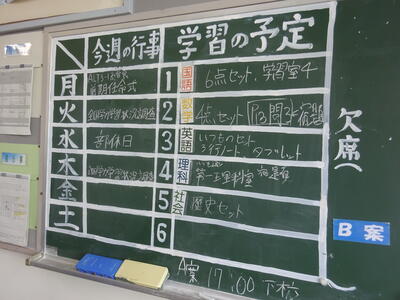 今週の行事
学習の予定
月
前期任命式
1 国語 6点セット、学習室4
火
2 数学 4点セット P13問3 宿題
水 部休日
3 英語 いつものセット
ノート、タブレット
木
4 理科 第一理科室
金
5 社会 歴史セット
土
6
欠席(
B案
A案 17:00 下校